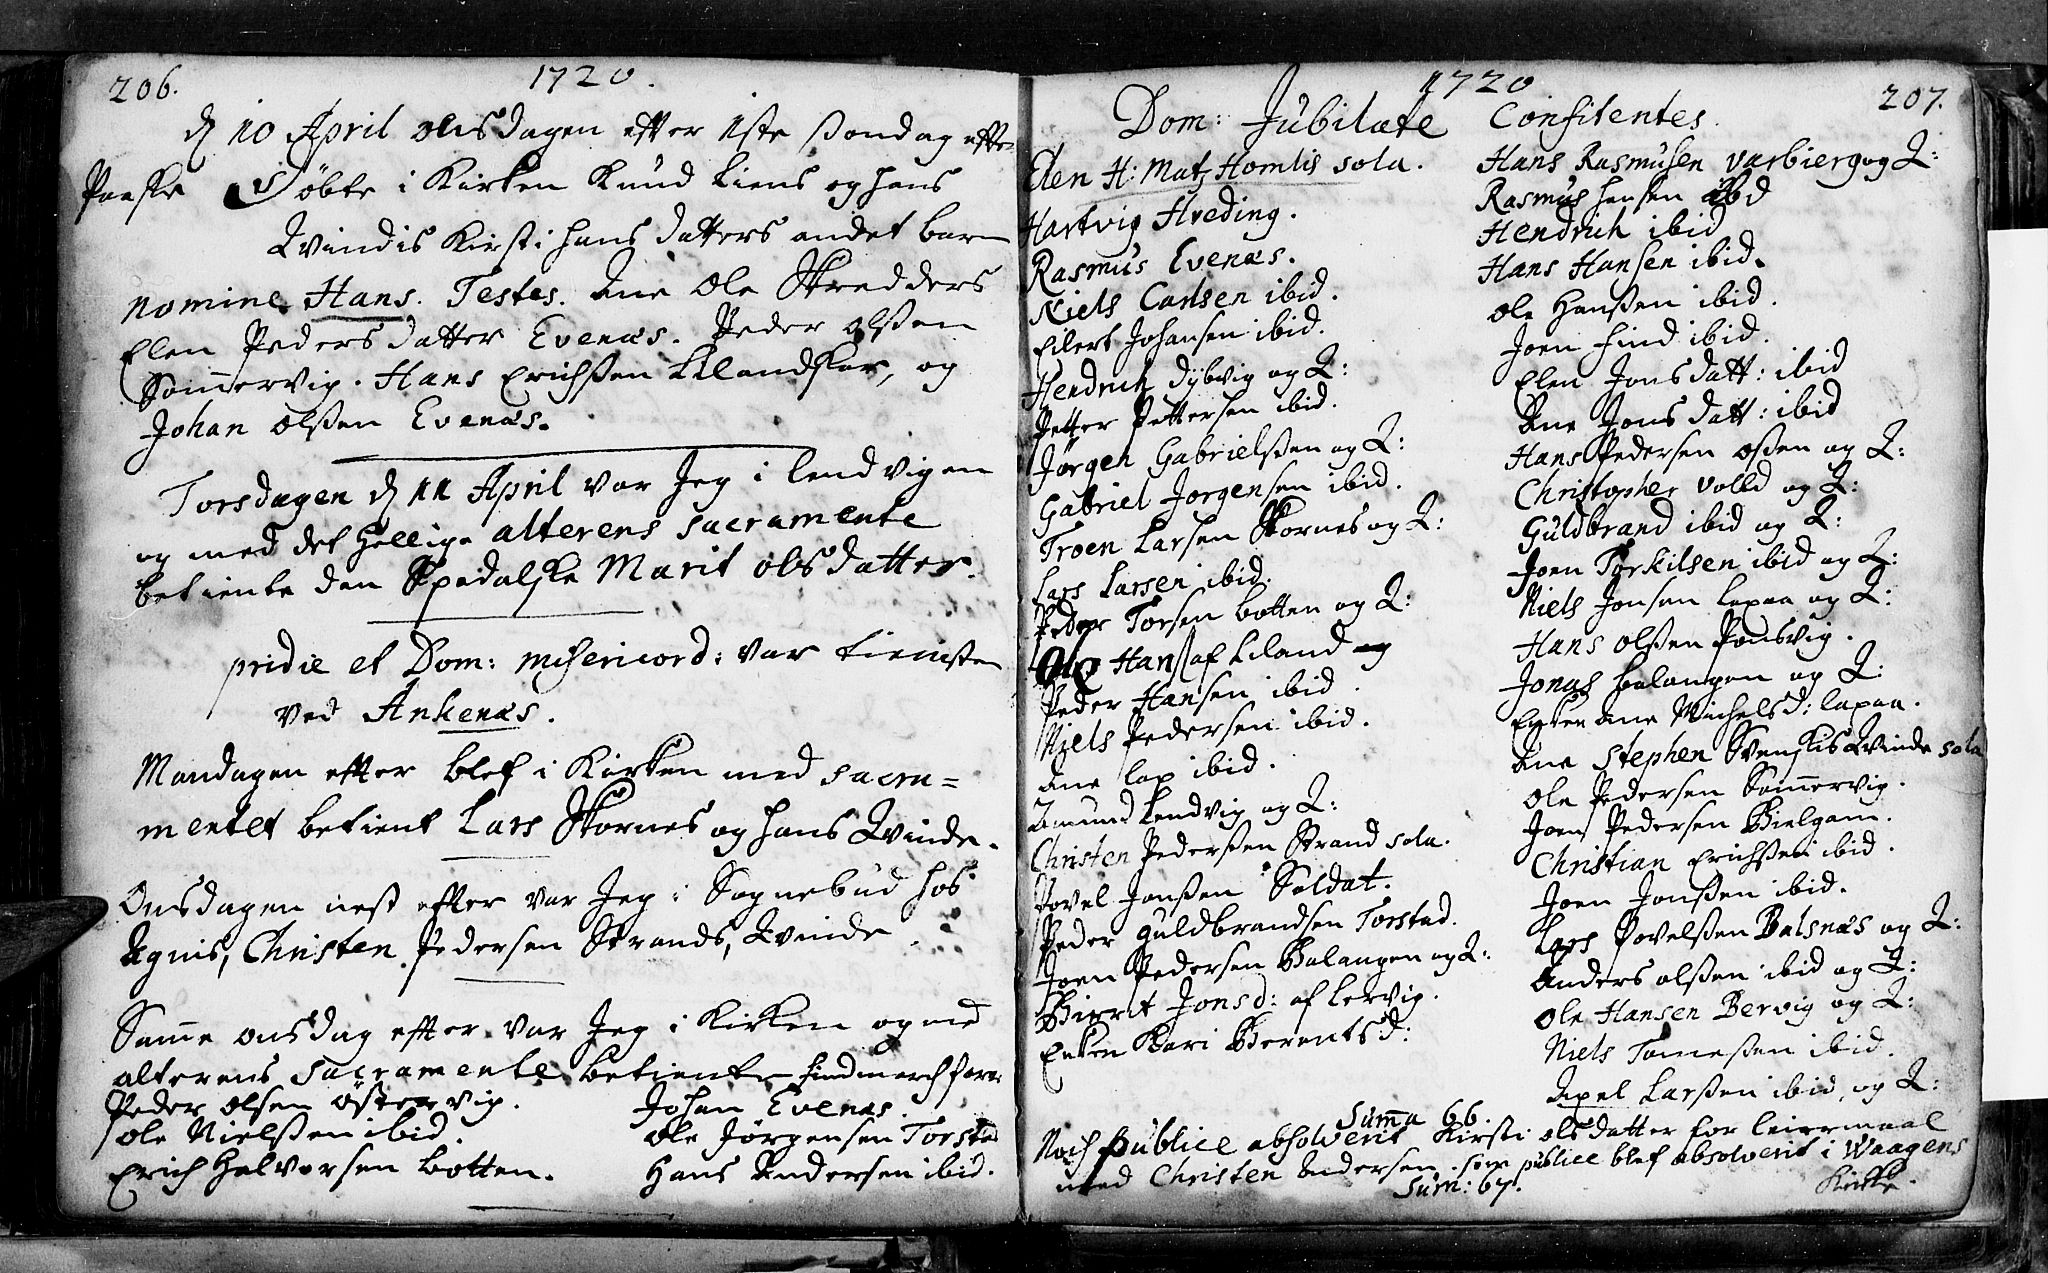 206.
1720.
d 10 April onsdagen efter 1ste søndag efter
Paaske Døbte i Kirken Knud Liens og hans
Qvindis Kirsti Hans datters andet barn
nomine Hans. Testes. Ane Ole Skredders
Elen Peders datter Evenæs. Peder olssen
Som̄ervig. Hans Erichssen Lilandskar, og
Johan olssen Evenæs.
Torsdagen d 11 April var Jeg i lendvigen
og med det hellige alterens sacramente
betiente den Spedalske Marit olsdatter.
pridie et Dom: misericord: var tienisten
ved Ankenæs.
Mandagen efter blef i Kirken med sacra=
mentet betient Lars Skornes og hans Qvinde.
Onsdagen nest efter var Jeg i Sognebud hos
Agnis, Christen Pedersen Strands, Qvinde.
Sam̄e onsdag efter var Jeg i Kirken og med
alterens sacramente betiente findmarch farer
Peder olsen østervig.
Johan Evenæs.
ole Nielssen ibid.
Ole Jørgensen Torstad
Erich Halvorsen botten.
Hans Andersen ibid.
1720
207.
Dom: Jubilate Confitentes.
Elen H: Matz Homlis sola.
Hartvig Hveding.
Rasmus Evenæs.
Niels Carlsen ibid.
Eilert Johansen ibid.
Hendrich Dybvig og Q:
Petter Pettersen ibid.
Jørgen Gabrielssen og Q:
Gabriel Jørgensen ibid.
Troen Larsen Skornes og Q:
Lars Larsen ibid.
Peder Torsen botten og Q:
Ole Hanss af Liland og
Peder Hansen ibid.
Niels Pedersen ibid.
Ane lap ibid.
Amund Lendvig og Q:
Christen Pederssen Strand sola.
Povel Jonssen Soldat.
Peder Guldbrandsen Torstad.
Joen Pedersen Balangen og Q:
Birit Jonsd: af Lervig.
Enken Kari Berentsd:
Hans Rasmusen Varbierg og Q:
Rasmus Hansen ibd
Hendrich ibid
Hans Hansen ibid.
Ole Hanssen ibid.
Joen find ibid.
Elen Jonsdatt: ibid
Ane Jons datt: ibid
Hans Pedersen ossen og Q:
Christopher Volld og Q:
Guldbrand ibid og Q:
Joen Torkilsen ibid og Q:
Niels Jonsen Lapaa og Q:
Hans olssen Ponsvig.
Jonas balangen og Q:
Enken Ane Michelsd: lapaa.
Ane Stephen Svenskis Qvinde sola
Ole Pedersen Som̄ervig.
Joen Pedersen Bielgam.
Christian Erichssen ibid.
Joen Jonssen ibid.
Lars Povelssen Balsnæs og Q:
Anders olssen ibid og Q:
Ole Hansen Bervig og Q:
Niels Tomessen ibid.
Axel Larssen ibid, og Q:
Sum̄a 66.
Noch publice absolverit Kirsti olsdatter for leiermaal
med Christen Andersen. som publice blef absolverit i Waagens
Kirke.
Sum: 67.